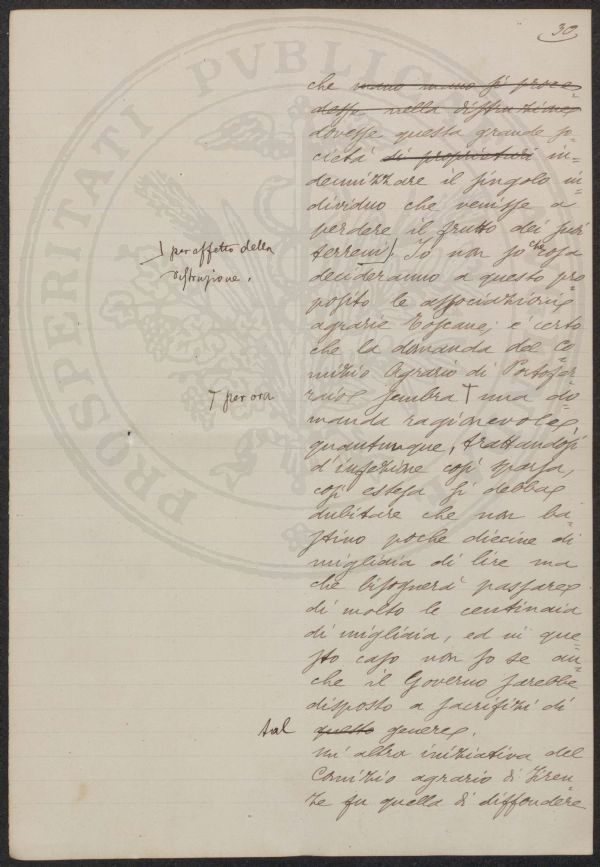 30
che mano mano si proce=
desse nella distruzione
dovesse questa grande so=
cietá di proprietari in=
dennizzare il singolo in=
dividuo che venisse a
perdere il frutto dei suoi
terreni. Io non so che cosa
decideranno a questo pro
posito le associazioni
agrarie Toscane; é certo
che la domanda del Co=
mizio Agrario di Portofer=
raio sembra una do=
manda ragionevole
quantunque, trattandosi
d'infezione cosí sparsa,
cosí estesa si debba
dubitare che non ba=
stino poche diecine di
migliaia di lire ma
che bisognerá passare
di molto le centinaia
di migliaia, ed in que=
sto caso non so se an=
che il Governo sarebbe
disposto a sacrifizi di
questo genere.
un'altra iniziativa del
Comizio agrario di Firen=
ze fu quella di diffondere
per effetto della
distruzione.
T per ora
tal
PROSPERITATI PVBLIC